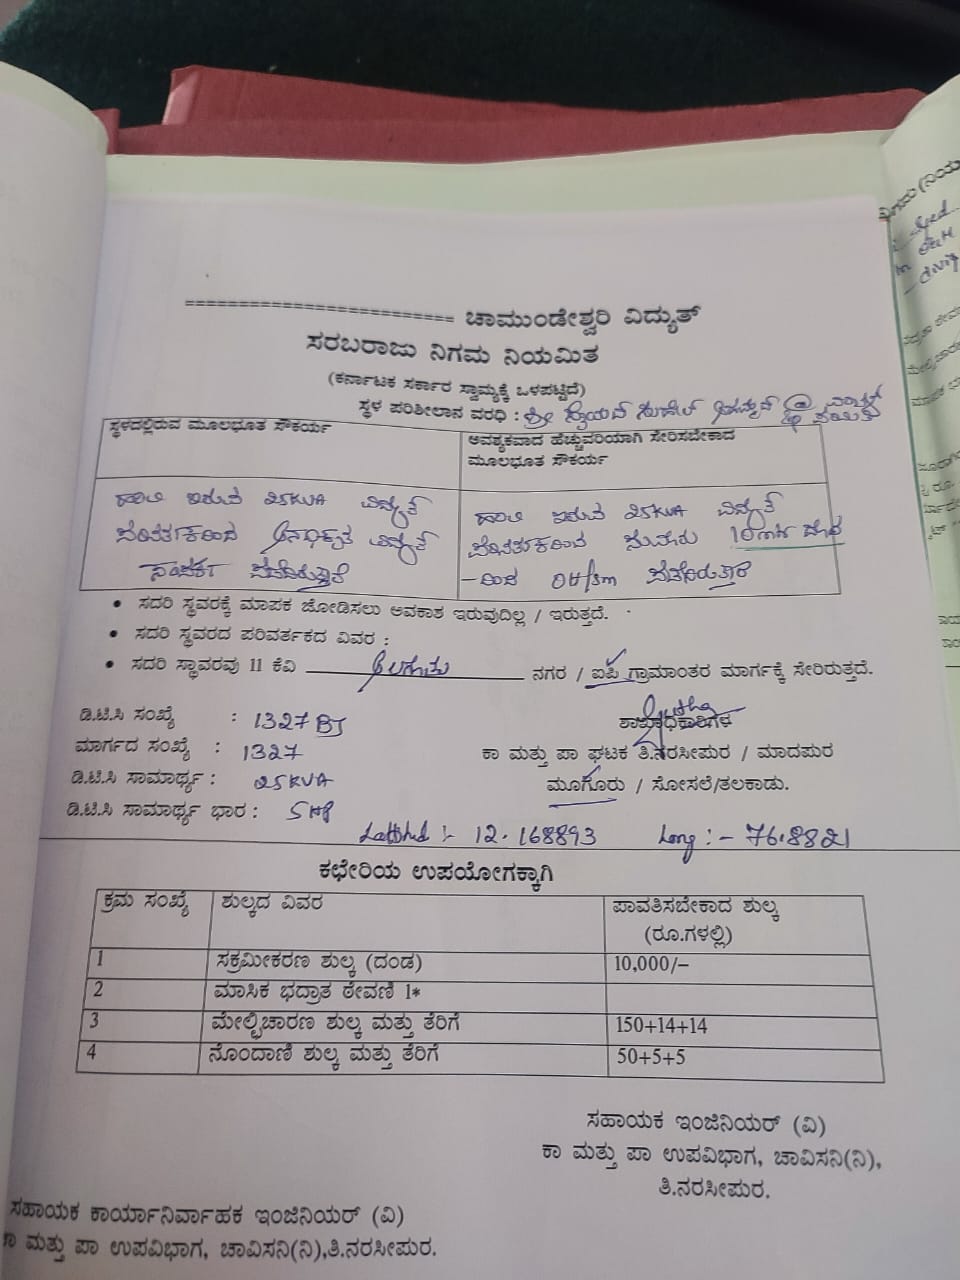 =========================== ಚಾಮುಂಡೇಶ್ವರಿ ವಿದ್ಯುತ್
ಸರಬರಾಜು ನಿಗಮ ನಿಯಮಿತ
(ಕರ್ನಾಟಕ ಸರ್ಕಾರ ಸ್ವಾಮ್ಯಕ್ಕೆ ಒಳಪಟ್ಟಿದೆ)
ಸ್ಥಳ ಪರಿಶೀಲಾನ ವರಧಿ : ಶ್ರೀ
ಸ್ಥಳದಲ್ಲಿರುವ ಮೂಲಭೂತ ಸೌಕರ್ಯ
ಅವಶ್ಯಕವಾದ ಹೆಚ್ಚುವರಿಯಾಗಿ ಸೇರಿಸಬೇಕಾದ
ಮೂಲಭೂತ ಸೌಕರ್ಯ
ಹಾಲಿ ಇರುವ 25KVA ವಿದ್ಯುತ್
ಪರಿವರ್ತಕದಿಂದ ಅನಧಿಕೃತ ವಿದ್ಯುತ್
ಸಂಪರ್ಕ ಪಡೆದಿರುತ್ತಾರೆ
ಹಾಲಿ ಇರುವ 25KVA ವಿದ್ಯುತ್
ಪರಿವರ್ತಕದಿಂದ ಸುಮಾರು 10mtr ದೂರ
ಪಡೆದಿರುತ್ತಾರೆ
• ಸದರಿ ಸ್ಥವರಕ್ಕೆ ಮಾಪಕ ಜೋಡಿಸಲು ಅವಕಾಶ ಇರುವುದಿಲ್ಲ / ಇರುತ್ತದೆ.
• ಸದರಿ ಸ್ಥವರದ ಪರಿವರ್ತಕದ ವಿವರ :
• ಸದರಿ ಸ್ಥಾವರವು 11 ಕೆವಿ ನಗರ / ಐಪಿ ಗ್ರಾಮಾಂತರ ಮಾರ್ಗಕ್ಕೆ ಸೇರಿರುತ್ತದೆ.
ಡಿ.ಟಿ.ಸಿ ಸಂಖ್ಯೆ : 1327 BJ
ಶಾಖಾಧಿಕಾರಿಗಳ
ಮಾರ್ಗದ ಸಂಖ್ಯೆ : 1327
ಕಾ ಮತ್ತು ಪಾ ಘಟಕ ತಿ.ನರಸೀಪುರ / ಮಾದಪುರ
ಡಿ.ಟಿ.ಸಿ ಸಾಮಾರ್ಥ್ಯ : 25KVA
ಮೂಗೂರು / ಸೋಸಲೆ/ತಲಕಾಡು.
ಡಿ.ಟಿ.ಸಿ ಸಾಮಾರ್ಥ್ಯ ಭಾರ : 5HP
12.168893 Long :- 76.8821
ಕಛೇರಿಯ ಉಪಯೋಗಕ್ಕಾಗಿ
ಕ್ರಮ ಸಂಖ್ಯೆ ಶುಲ್ಕದ ವಿವರ ಪಾವತಿಸಬೇಕಾದ ಶುಲ್ಕ
(ರೂ.ಗಳಲ್ಲಿ)
1 ಸಕ್ರಮೀಕರಣ ಶುಲ್ಕ (ದಂಡ) 10,000/-
2 ಮಾಸಿಕ ಭದ್ರಾತ ಠೇವಣಿ 1*
3 ಮೇಲ್ವಿಚಾರಣ ಶುಲ್ಕ ಮತ್ತು ತೆರಿಗೆ 150+14+14
4 ನೊಂದಾಣಿ ಶುಲ್ಕ ಮತ್ತು ತೆರಿಗೆ 50+5+5
ಸಹಾಯಕ ಇಂಜಿನಿಯರ್ (ವಿ)
ಕಾ ಮತ್ತು ಪಾ ಉಪವಿಭಾಗ, ಚಾವಿಸನಿ(ನಿ),
ತಿ.ನರಸೀಪುರ.
ಸಹಾಯಕ ಕಾರ್ಯಾನಿರ್ವಾಹಕ ಇಂಜಿನಿಯರ್ (ವಿ)
ಕಾ ಮತ್ತು ಪಾ ಉಪವಿಭಾಗ, ಚಾವಿಸನಿ(ನಿ),ತಿ.ನರಸೀಪುರ.